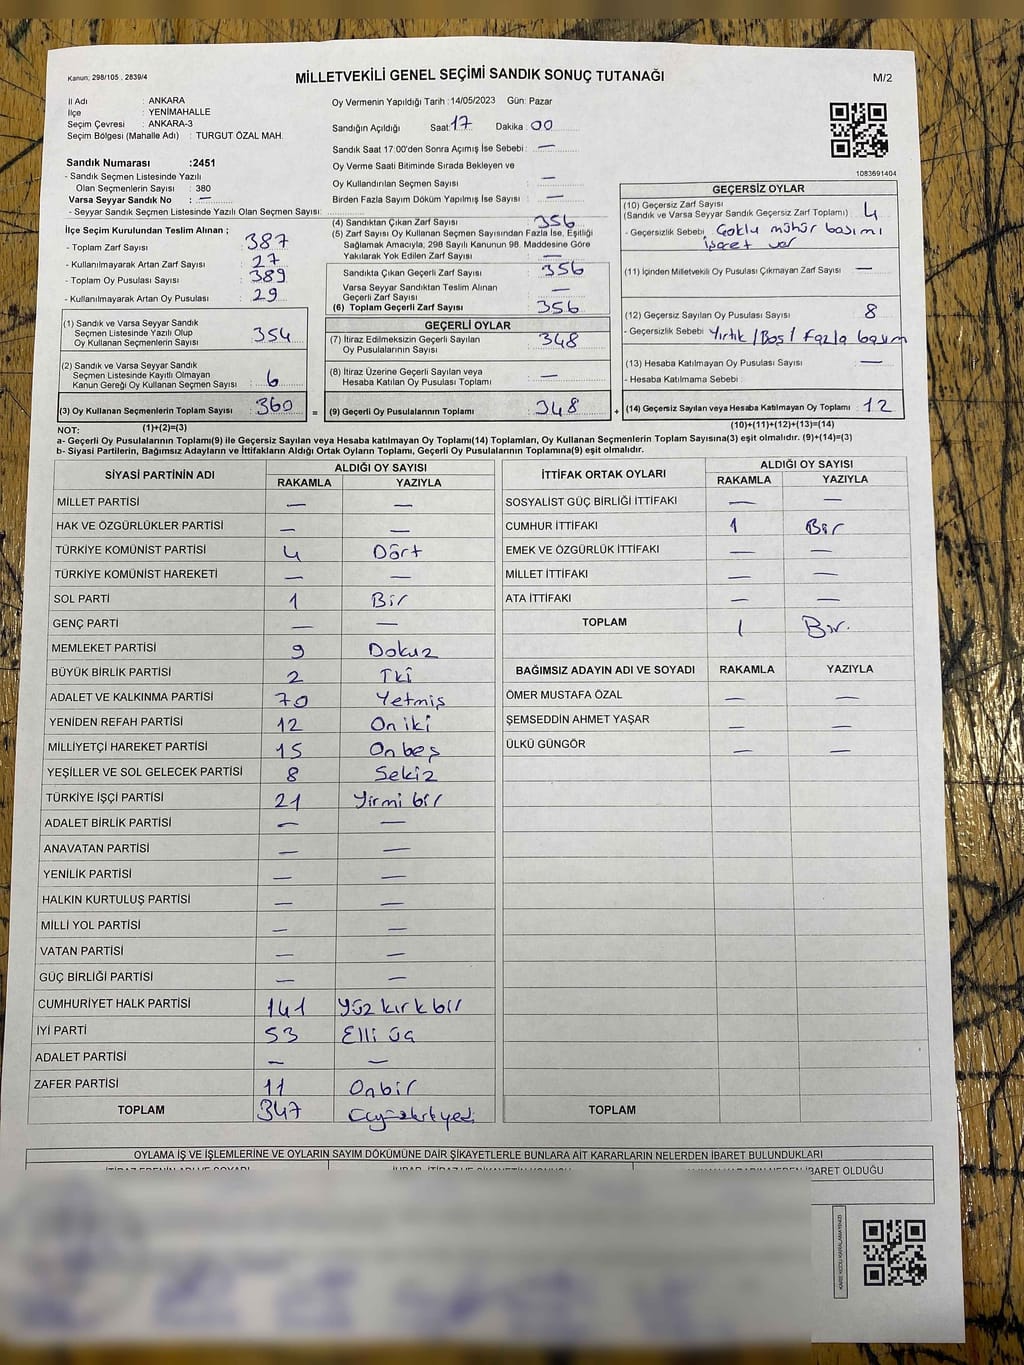 Kanun; 298/105 , 2839/4
MİLLETVEKİLİ GENEL SEÇİMİ SANDIK SONUÇ TUTANAĞI
M/2
İl Adı : ANKARA
İlçe : YENİMAHALLE
Seçim Çevresi : ANKARA-3
Seçim Bölgesi (Mahalle Adı) : TURGUT ÖZAL MAH.
Sandık Numarası :2451
- Sandık Seçmen Listesinde Yazılı
Olan Seçmenlerin Sayısı : 380
Varsa Seyyar Sandık No : —
- Seyyar Sandık Seçmen Listesinde Yazılı Olan Seçmen Sayısı:
İlçe Seçim Kurulundan Teslim Alınan ;
- Toplam Zarf Sayısı : 387
- Kullanılmayarak Artan Zarf Sayısı : 27
- Toplam Oy Pusulası Sayısı : 389
- Kullanılmayarak Artan Oy Pusulası : 29
(1) Sandık ve Varsa Seyyar Sandık
Seçmen Listesinde Yazılı Olup
Oy Kullanan Seçmenlerin Sayısı : 354
(2) Sandık ve Varsa Seyyar Sandık
Seçmen Listesinde Kayıtlı Olmayan
Kanun Gereği Oy Kullanan Seçmen Sayısı : 6
(3) Oy Kullanan Seçmenlerin Toplam Sayısı : 360
(1)+(2)=(3)
Oy Vermenin Yapıldığı Tarih :14/05/2023 Gün: Pazar
Sandığın Açıldığı Saat:17 Dakika : 00
Sandık Saat 17:00'den Sonra Açımış İse Sebebi : —
Oy Verme Saati Bitiminde Sırada Bekleyen ve
Oy Kullandırılan Seçmen Sayısı : —
Birden Fazla Sayım Döküm Yapılmış İse Sayısı : —
(4) Sandıktan Çıkan Zarf Sayısı : 356
(5) Zarf Sayısı Oy Kullanan Seçmen Sayısından Fazla İse, Eşitliği
Sağlamak Amacıyla, 298 Sayılı Kanunun 98. Maddesine Göre
Yakılarak Yok Edilen Zarf Sayısı : —
Sandıkta Çıkan Geçerli Zarf Sayısı : 356
Varsa Seyyar Sandıktan Teslim Alınan
Geçerli Zarf Sayısı : —
(6) Toplam Geçerli Zarf Sayısı : 356
GEÇERLİ OYLAR
(7) İtiraz Edilmeksizin Geçerli Sayılan
Oy Pusulalarının Sayısı : 348
(8) İtiraz Üzerine Geçerli Sayılan veya
Hesaba Katılan Oy Pusulası Toplamı : —
= (9) Geçerli Oy Pusulalarının Toplamı : 348
1083691404
GEÇERSİZ OYLAR
(10) Geçersiz Zarf Sayısı
(Sandık ve Varsa Seyyar Sandık Geçersiz Zarf Toplamı) : 4
- Geçersizlik Sebebi : Çoklu mühür basımı
işaret var
(11) İçinden Milletvekili Oy Pusulası Çıkmayan Zarf Sayısı : —
(12) Geçersiz Sayılan Oy Pusulası Sayısı : 8
- Geçersizlik Sebebi : Yırtık / Boş / fazla basım
(13) Hesaba Katılmayan Oy Pusulası Sayısı : —
- Hesaba Katılmama Sebebi :
+ (14) Geçersiz Sayılan veya Hesaba Katılmayan Oy Toplamı : 12
(10)+(11)+(12)+(13)=(14)
NOT:
a- Geçerli Oy Pusulalarının Toplamı(9) ile Geçersiz Sayılan veya Hesaba katılmayan Oy Toplamı(14) Toplamları, Oy Kullanan Seçmenlerin Toplam Sayısına(3) eşit olmalıdır. (9)+(14)=(3)
b- Siyasi Partilerin, Bağımsız Adayların ve İttifakların Aldığı Ortak Oyların Toplamı, Geçerli Oy Pusulalarının Toplamına(9) eşit olmalıdır.
SİYASİ PARTİNİN ADI
ALDIĞI OY SAYISI
RAKAMLA YAZIYLA
MİLLET PARTİSİ — —
HAK VE ÖZGÜRLÜKLER PARTİSİ — —
TÜRKİYE KOMÜNİST PARTİSİ 4 Dört
TÜRKİYE KOMÜNİST HAREKETİ — —
SOL PARTİ 1 Bir
GENÇ PARTİ — —
MEMLEKET PARTİSİ 9 Dokuz
BÜYÜK BİRLİK PARTİSİ 2 İki
ADALET VE KALKINMA PARTİSİ 70 Yetmiş
YENİDEN REFAH PARTİSİ 12 On iki
MİLLİYETÇİ HAREKET PARTİSİ 15 On beş
YEŞİLLER VE SOL GELECEK PARTİSİ 8 Sekiz
TÜRKİYE İŞÇİ PARTİSİ 21 Yirmi bir
ADALET BİRLİK PARTİSİ — —
ANAVATAN PARTİSİ — —
YENİLİK PARTİSİ — —
HALKIN KURTULUŞ PARTİSİ — —
MİLLİ YOL PARTİSİ — —
VATAN PARTİSİ — —
GÜÇ BİRLİĞİ PARTİSİ — —
CUMHURİYET HALK PARTİSİ 141 Yüz kırk bir
İYİ PARTİ 53 Elli üç
ADALET PARTİSİ — —
ZAFER PARTİSİ 11 Onbir
TOPLAM 347 Üçyüzkırkyedi
İTTİFAK ORTAK OYLARI
ALDIĞI OY SAYISI
RAKAMLA YAZIYLA
SOSYALİST GÜÇ BİRLİĞİ İTTİFAKI — —
CUMHUR İTTİFAKI 1 Bir
EMEK VE ÖZGÜRLÜK İTTİFAKI — —
MİLLET İTTİFAKI — —
ATA İTTİFAKI — —
TOPLAM 1 Bir.
BAĞIMSIZ ADAYIN ADI VE SOYADI RAKAMLA YAZIYLA
ÖMER MUSTAFA ÖZAL — —
ŞEMSEDDİN AHMET YAŞAR — —
ÜLKÜ GÜNGÖR — —
TOPLAM
OYLAMA İŞ VE İŞLEMLERİNE VE OYLARIN SAYIM DÖKÜMÜNE DAİR ŞİKAYETLERLE BUNLARA AİT KARARLARIN NELERDEN İBARET BULUNDUKLARI